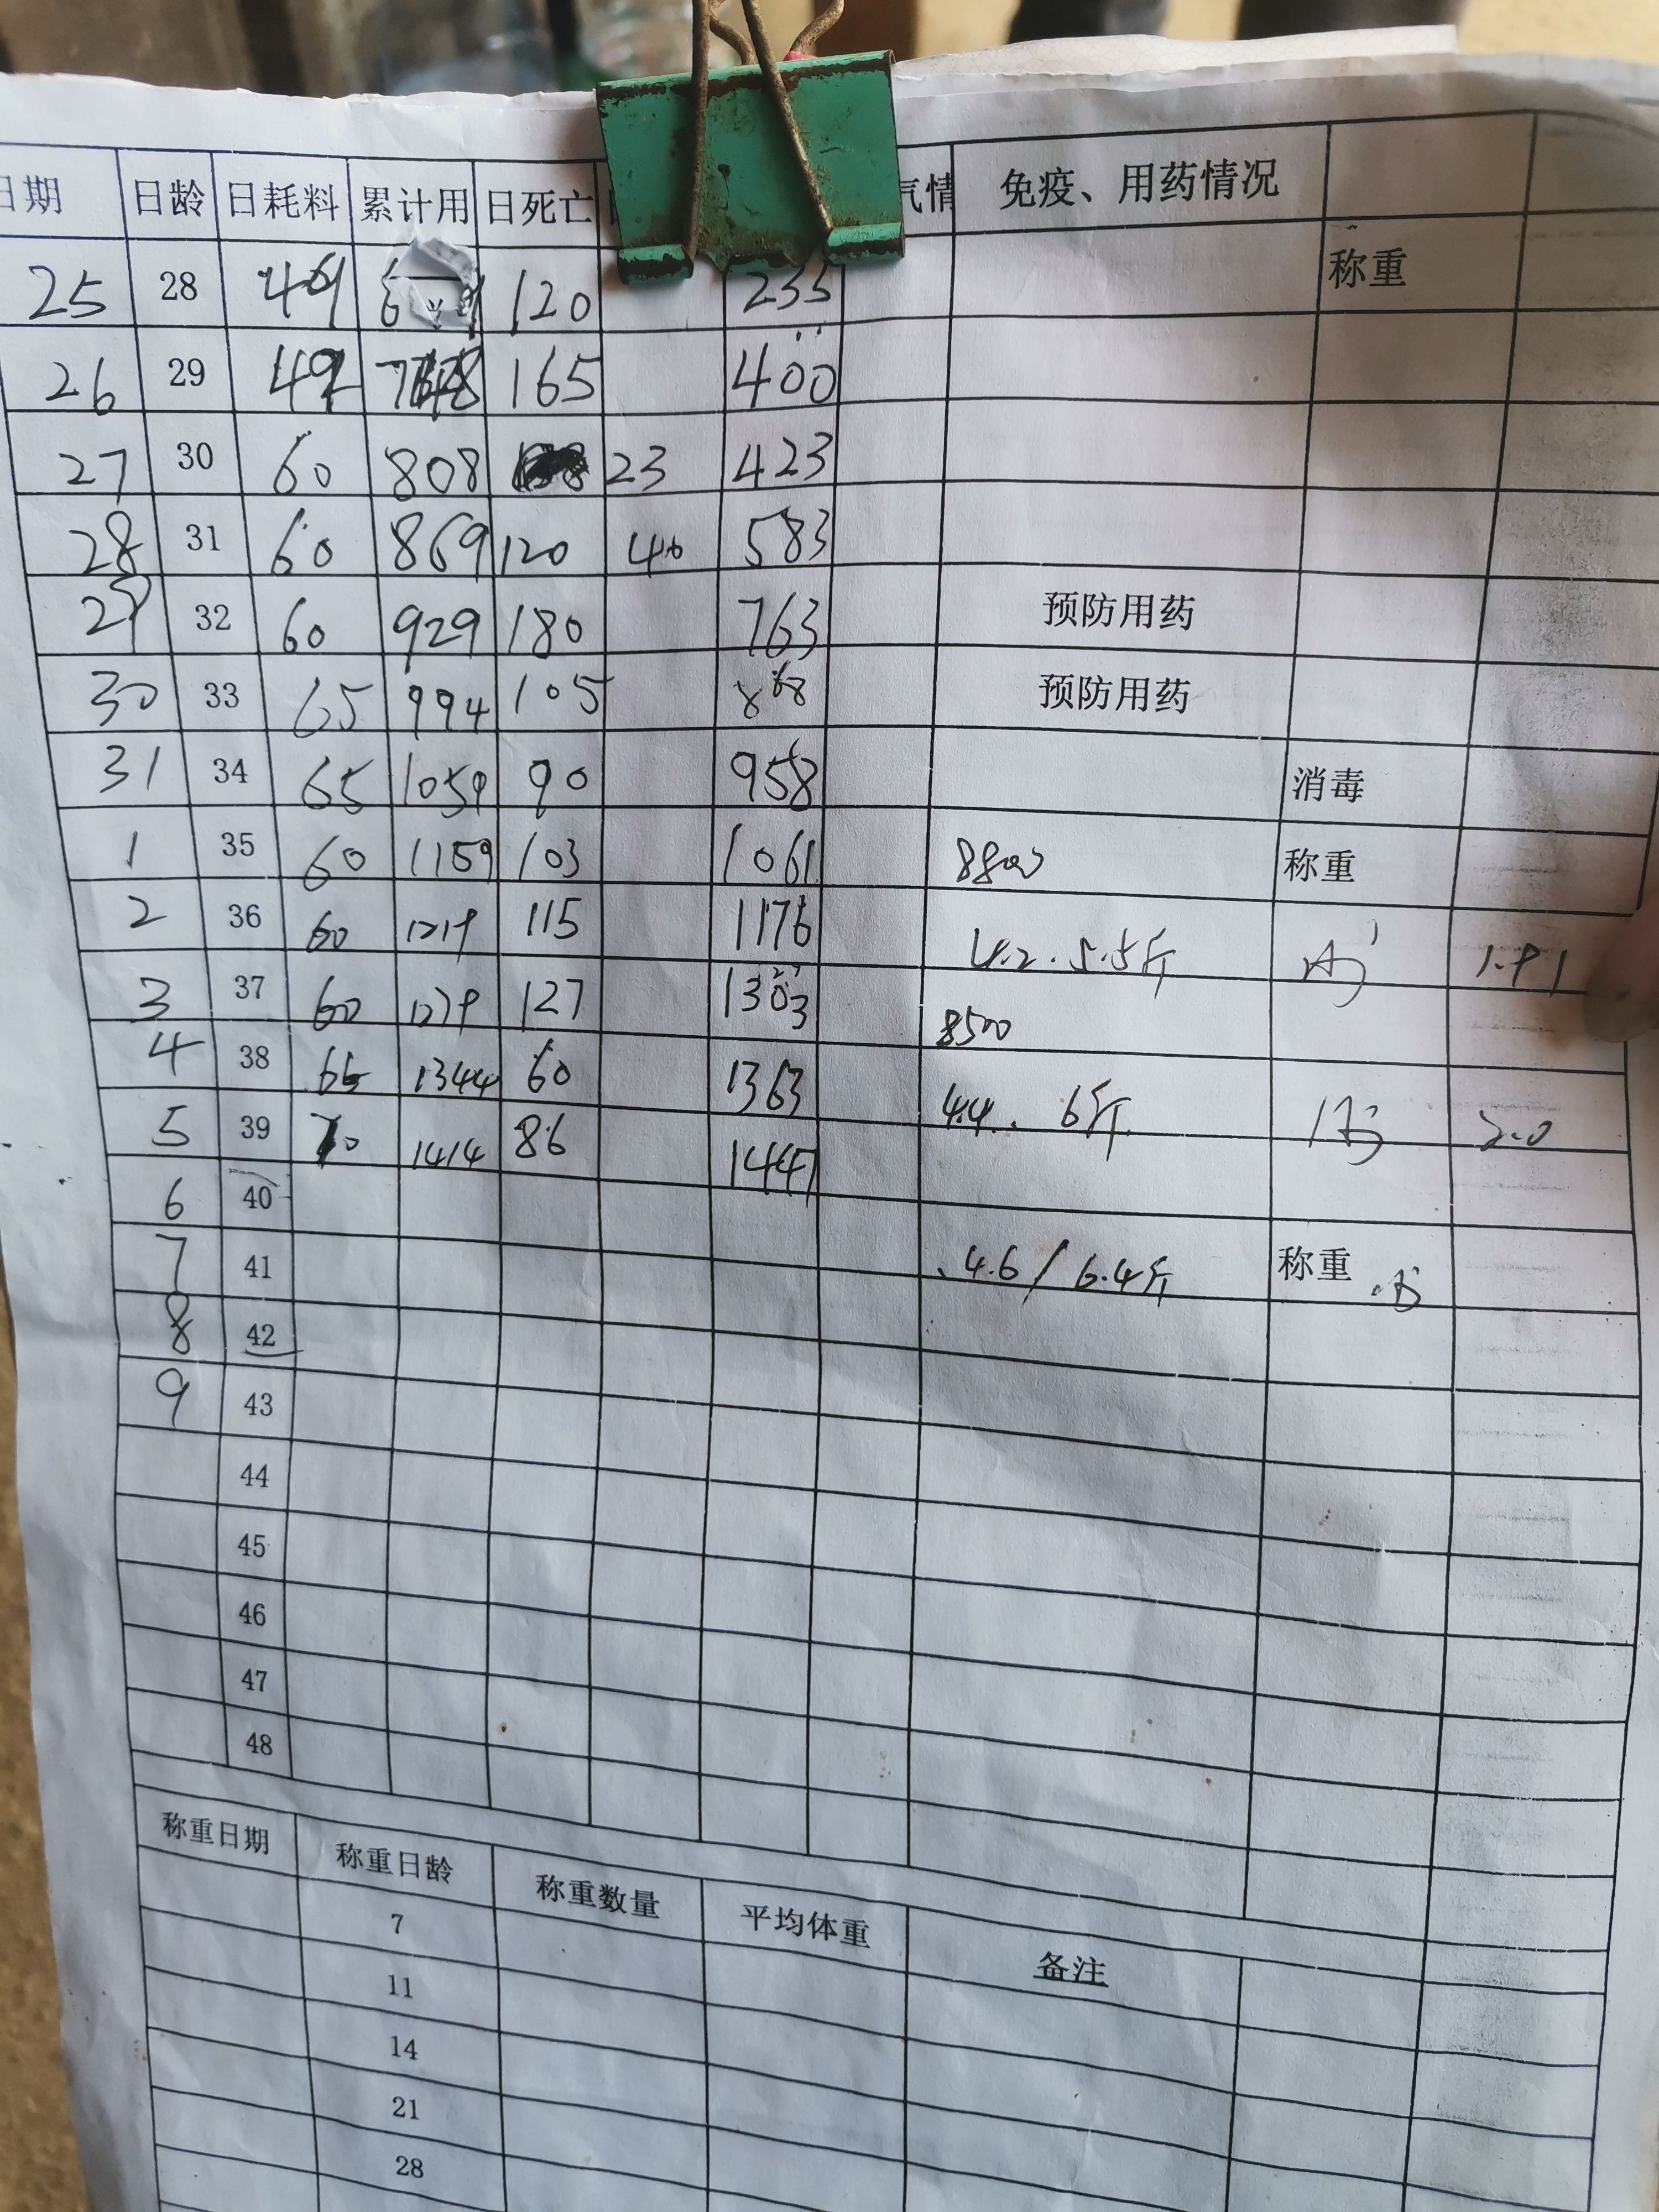 日期 日龄 日耗料 累计用 日死亡 气情 免疫、用药情况
25 28 49 120 235 称重
26 29 49 748 165 400
27 30 60 808 23 423
28 31 60 869 120 40 583
29 32 60 929 180 763 预防用药
30 33 65 994 105 868 预防用药
31 34 65 1059 90 958 消毒
1 35 60 1159 103 1061 8800 称重
2 36 60 1219 115 1176 4.2. 5.5斤 1.91
3 37 60 1279 127 1303 8500
4 38 65 1344 60 1363 4.4. 6斤 2.0
5 39 70 1414 86 1447
6 40
7 41 4.6/6.4斤 称重
8 42
9 43
44
45
46
47
48
称重日期 称重日龄 称重数量 平均体重 备注
7
11
14
21
28